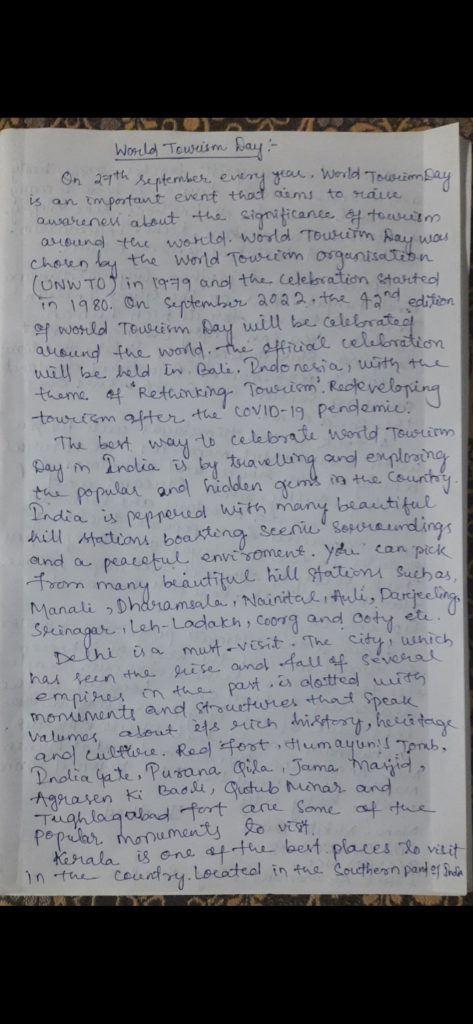 World Tourism Day :-
On 27th September every year. World Tourism Day
is an important event that aims to raise
awareness about the significance of tourism
around the world. World Tourism Day was
chosen by the World Tourism organisation
(UNWTO) in 1979 and the celebration started
in 1980. On September 2022, the 42nd edition
of world Tourism Day will be celebrated
around the world. The official celebration
will be held In Bali, Indonesia, with the
theme of "Rethinking Tourism". Redeveloping
tourism after the COVID-19 pendemic.
The best way to celebrate World Tourism
Day in India is by travelling and exploring
the popular and hidden gems in the country.
India is peppered with many beautiful
hill stations boasting scenic sorroundings
and a peaceful enviroment. You can pick
from many beautiful hill stations such as,
Manali, Dharamsala, Nainital, Auli, Darjeeling,
Srinagar, Leh-Ladakh, Coorg and Ooty etc.
Delhi is a must-visit. The city, which
has seen the rise and fall of several
empires in the past, is dotted with
monuments and structures that speak
valumes about its rich history, heritage
and culture. Red Fort, Humayun's Tomb,
India Gate, Purana Qila, Jama Masjid,
Agrasen Ki Baoli, Qutub Minar and
Tughlaqabad Fort are some of the
popular monuments to visit.
Kerala is one of the best places to visit
in the country. Located in the Southern part of India